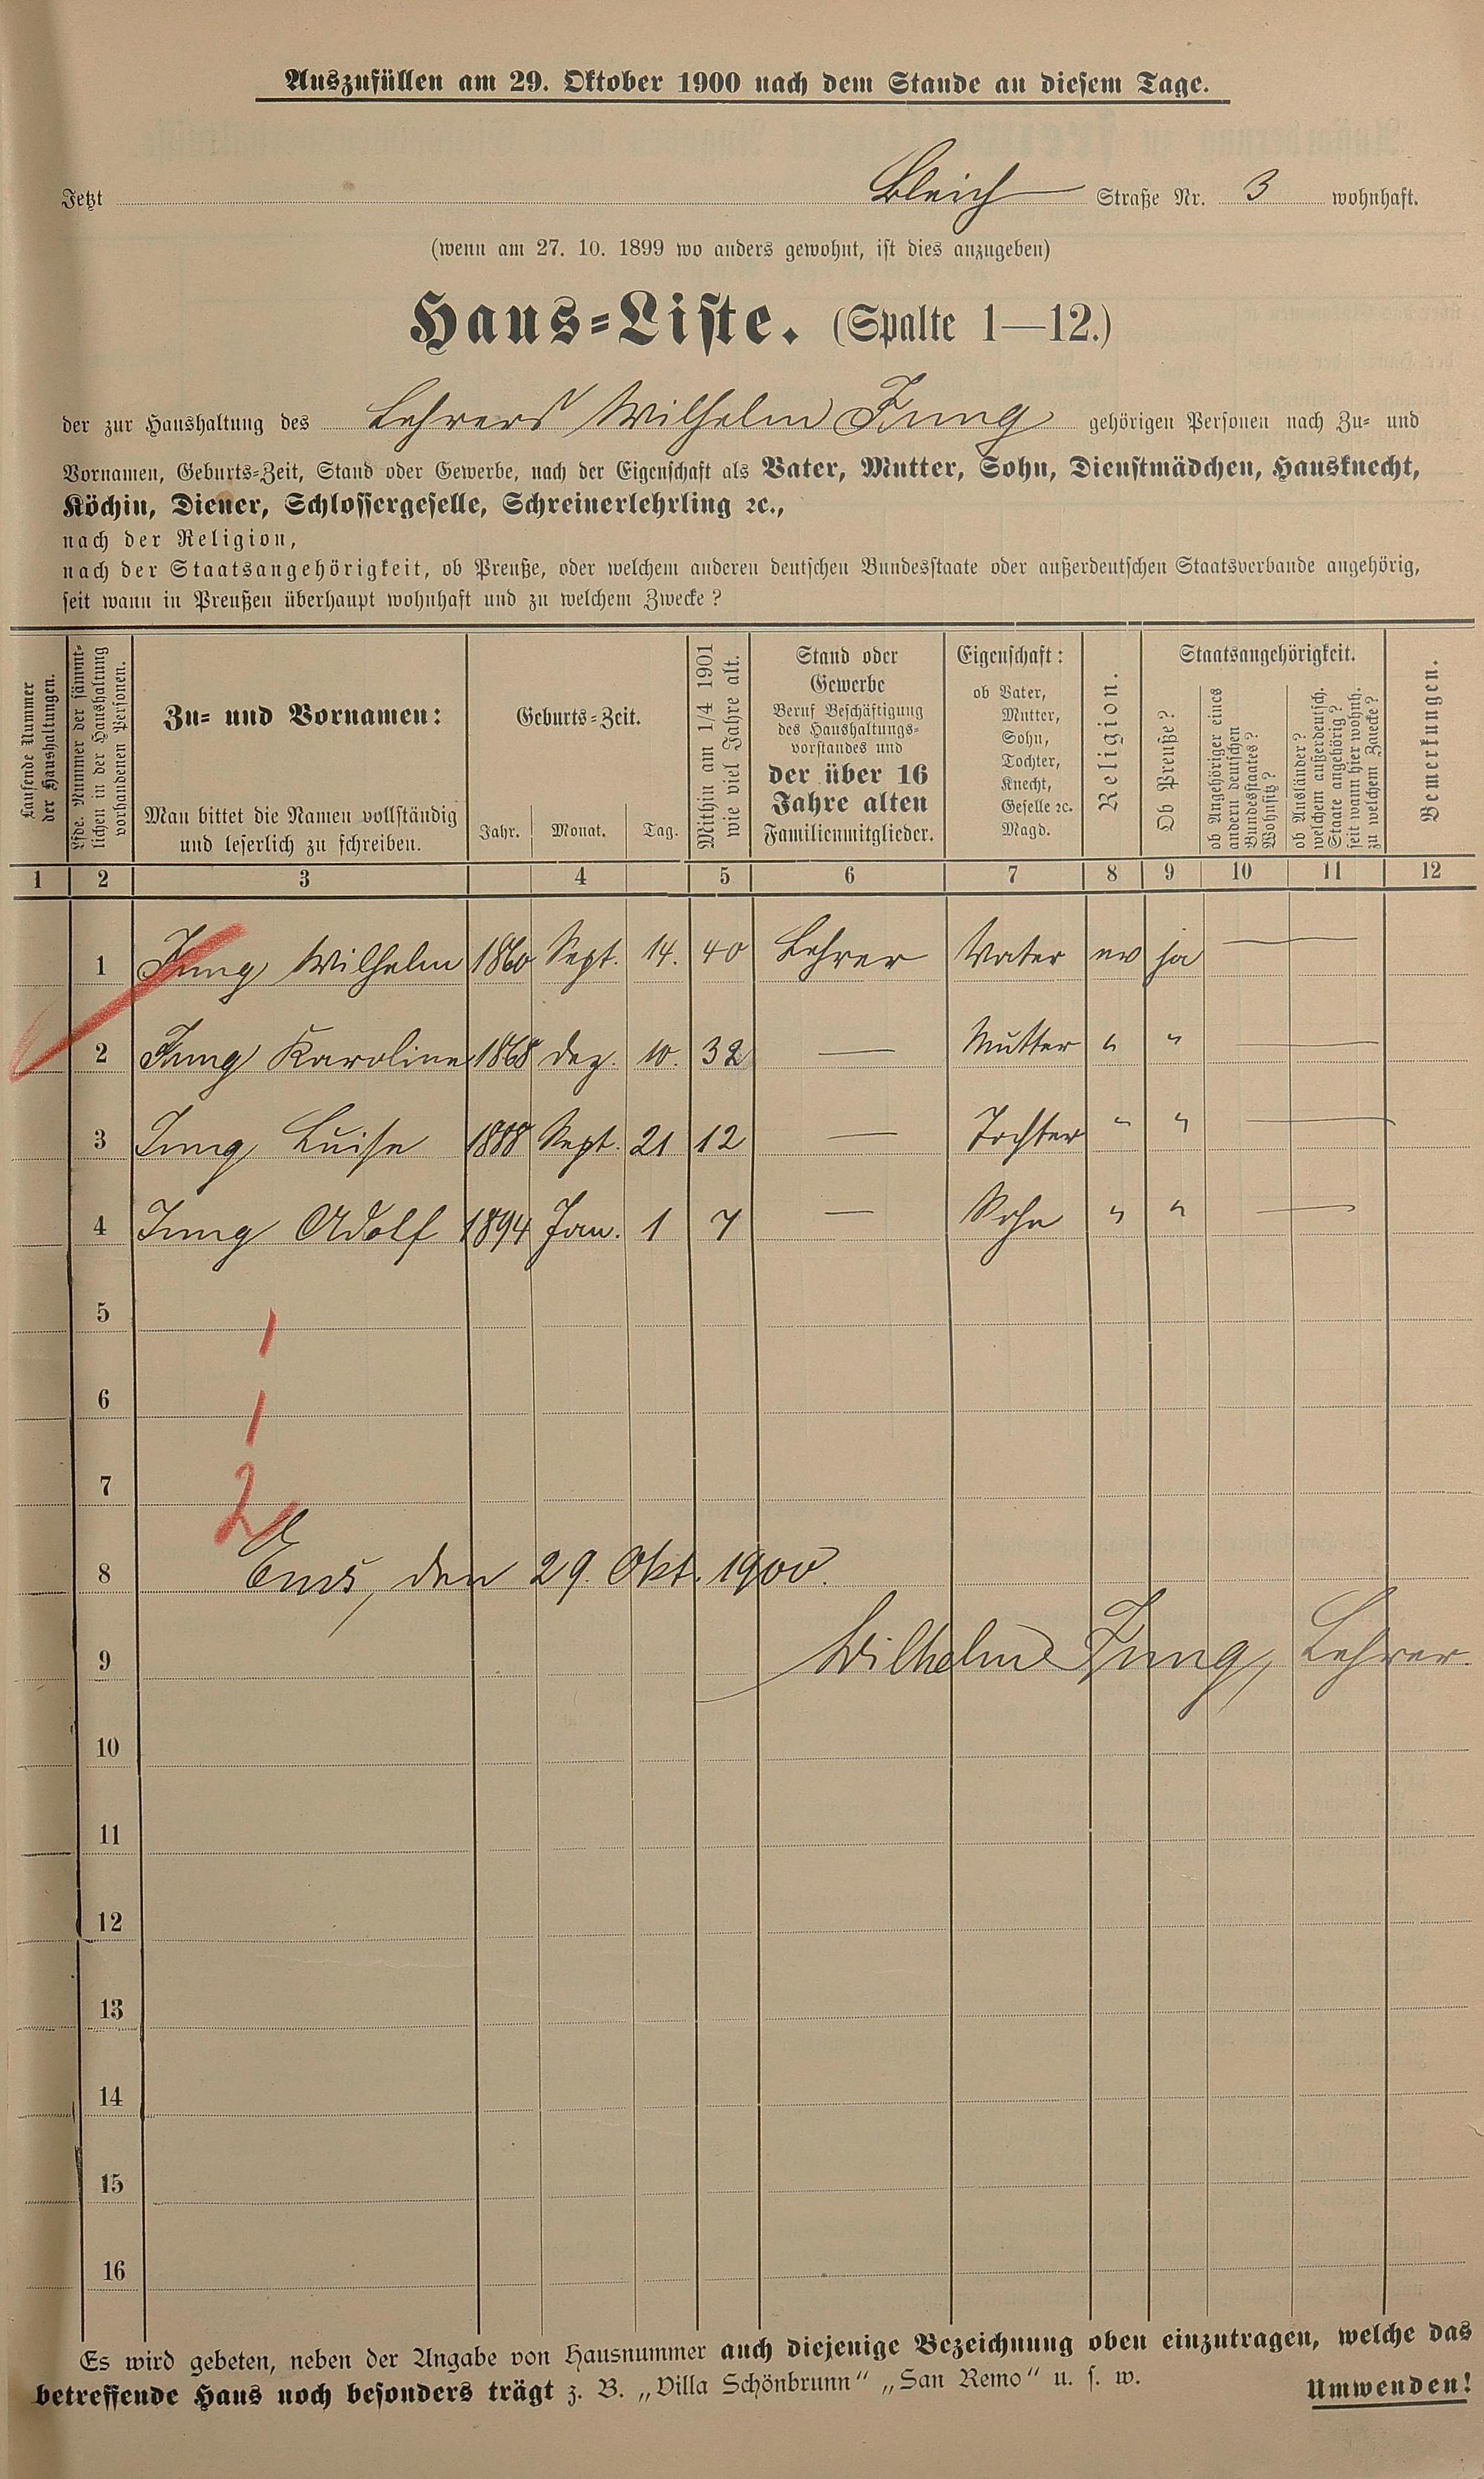 Auszufüllen am 29. Oktober 1900 nach dem Stande an diesem Tage.
Jetzt Bleich Straße Nr. 3 wohnhaft.
(wenn am 27. 10. 1899 wo anders gewohnt, ist dies anzugeben)
Haus-Liste. (Spalte 1—12.)
der zur Haushaltung des Lehrers Wilhelm Jung gehörigen Personen nach Zu- und
Vornamen, Geburts-Zeit, Stand oder Gewerbe, nach der Eigenschaft als Vater, Mutter, Sohn, Dienstmädchen, Hausknecht,
Köchin, Diener, Schlossergeselle, Schreinerlehrling ꝛc.,
nach der Religion,
nach der Staatsangehörigkeit, ob Preuße, oder welchem anderen deutschen Bundesstaate oder außerdeutschen Staatsverbande angehörig,
seit wann in Preußen überhaupt wohnhaft und zu welchem Zwecke?
Laufende Nummer
der Haushaltungen.
Lfde. Nummer der sämmt-
lichen in der Haushaltung
vorhandenen Personen.
Zu- und Vornamen:
Man bittet die Namen vollständig
und leserlich zu schreiben.
Geburts-Zeit.
Jahr. Monat. Tag.
Mithin am 1/4 1901
wie viel Jahre alt.
Stand oder
Gewerbe
Beruf Beschäftigung
des Haushaltungs-
vorstandes und
der über 16
Jahre alten
Familienmitglieder.
Eigenschaft:
ob Vater,
Mutter,
Sohn,
Tochter,
Knecht,
Geselle ꝛc.
Magd.
Religion.
Staatsangehörigkeit.
Ob Preuße?
ob Angehöriger eines
andern deutschen
Bundesstaates?
Wohnsitz?
ob Ausländer?
welchem außerdeutsch.
Staate angehörig?
seit wann hier wohnh.
zu welchem Zwecke?
Bemerkungen.
1 2 3 4 5 6 7 8 9 10 11 12
1 Jung Wilhelm 1860 Sept. 14. 40 Lehrer Vater ev ja —
2 Jung Karoline 1868 Dez. 10. 32 — Mutter " " —
3 Jung Luise 1888 Sept. 21 12 — Tochter " " —
4 Jung Adolf 1894 Jan. 1 7 — Sohn " " —
5
1
6
1
7
2
8 Ems, den 29. Okt. 1900.
9 Wilhelm Jung, Lehrer.
10
11
12
13
14
15
16
Es wird gebeten, neben der Angabe von Hausnummer auch diejenige Bezeichnung oben einzutragen, welche das
betreffende Haus noch besonders trägt z. B. „Villa Schönbrunn“ „San Remo“ u. s. w.
Umwenden!